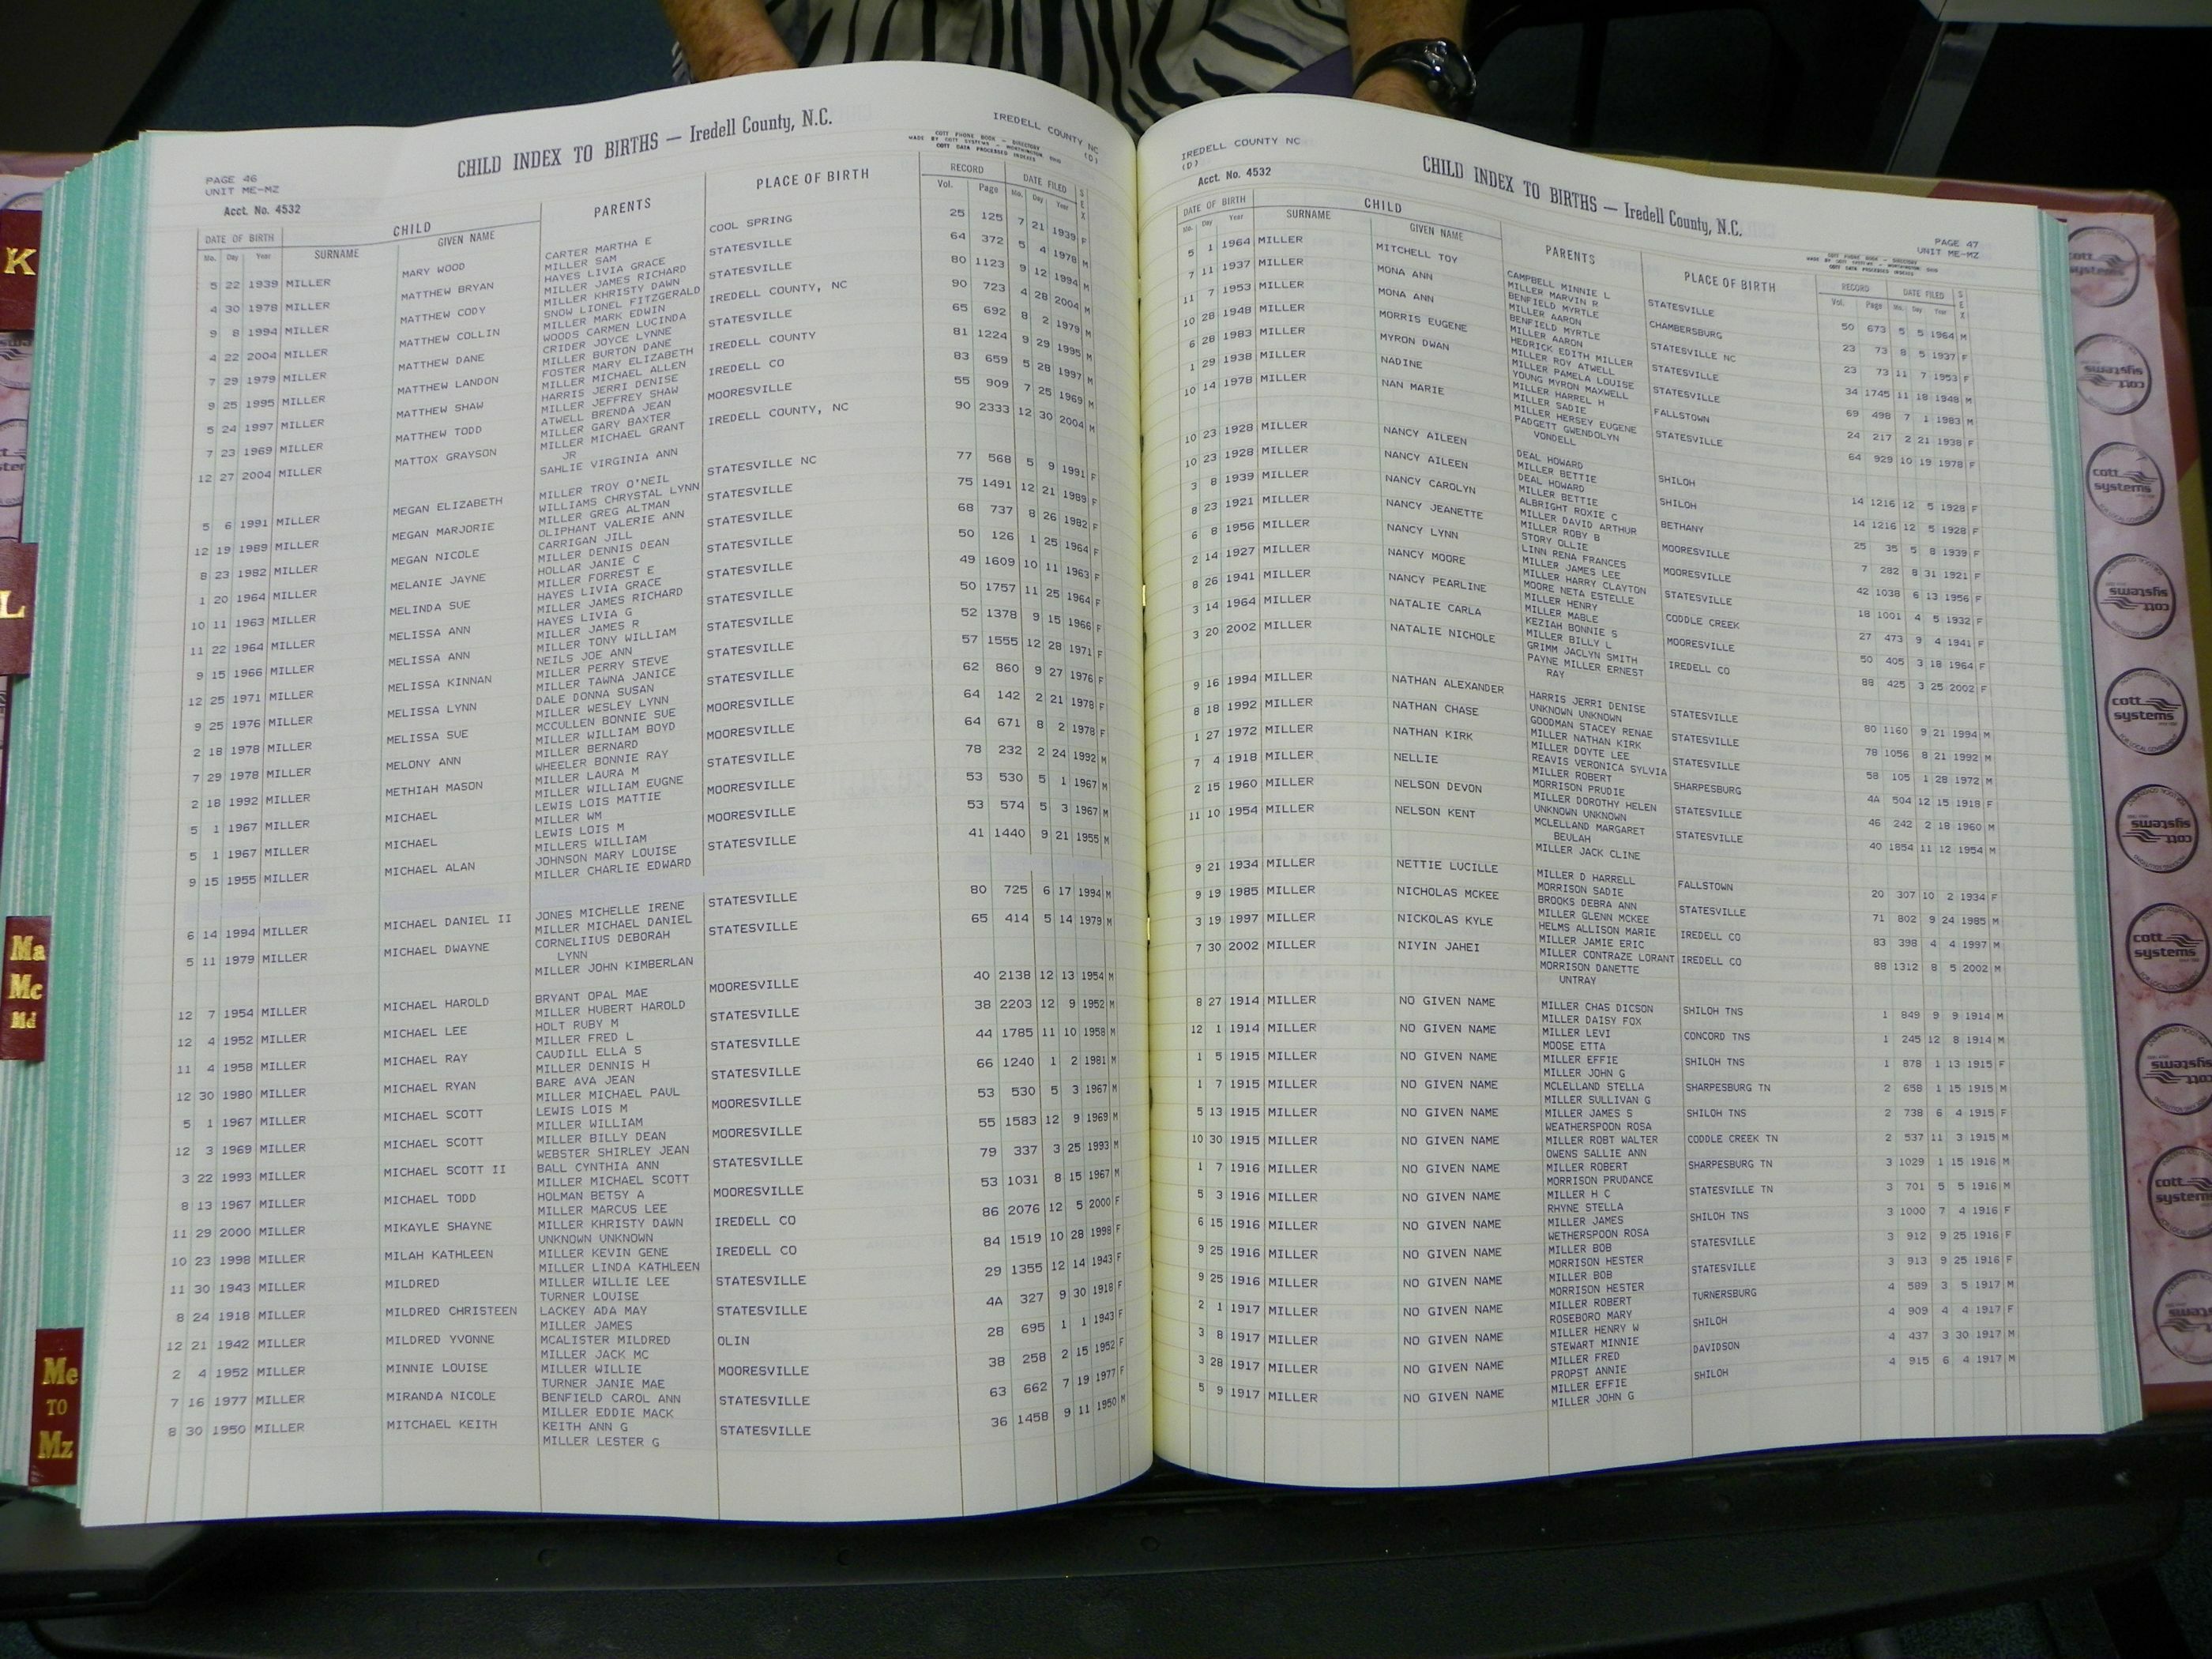 PAGE 46
UNIT ME-MZ
Acct. No. 4532
CHILD INDEX TO BIRTHS — Iredell County, N.C.
IREDELL COUNTY NC
(D)
COTT PHONE BOOK - DIRECTORY
MADE BY COTT SYSTEMS - WORTHINGTON, OHIO
COTT DATA PROCESSED INDEXES
DATE OF BIRTH CHILD PARENTS PLACE OF BIRTH RECORD DATE FILED SEX
Mo. Day Year SURNAME GIVEN NAME Vol. Page Mo. Day Year
5 22 1939 MILLER MARY WOOD CARTER MARTHA E COOL SPRING 25 125 7 21 1939 F
MILLER SAM
4 30 1978 MILLER MATTHEW BRYAN HAYES LIVIA GRACE STATESVILLE 64 372 5 4 1978 M
MILLER JAMES RICHARD
9 8 1994 MILLER MATTHEW CODY MILLER KHRISTY DAWN STATESVILLE 80 1123 9 12 1994 M
SNOW LIONEL FITZGERALD
4 22 2004 MILLER MATTHEW COLLIN MILLER MARK EDWIN IREDELL COUNTY, NC 90 723 4 28 2004 M
WOODS CARMEN LUCINDA
7 29 1979 MILLER MATTHEW DANE CRIDER JOYCE LYNNE STATESVILLE 65 692 8 2 1979 M
MILLER BURTON DANE
9 25 1995 MILLER MATTHEW LANDON FOSTER MARY ELIZABETH IREDELL COUNTY 81 1224 9 29 1995 M
MILLER MICHAEL ALLEN
5 24 1997 MILLER MATTHEW SHAW HARRIS JERRI DENISE IREDELL CO 83 659 5 28 1997 M
MILLER JEFFREY SHAW
7 23 1969 MILLER MATTHEW TODD ATWELL BRENDA JEAN MOORESVILLE 55 909 7 25 1969 M
MILLER GARY BAXTER
12 27 2004 MILLER MATTOX GRAYSON MILLER MICHAEL GRANT IREDELL COUNTY, NC 90 2333 12 30 2004 M
JR
SAHLIE VIRGINIA ANN
5 6 1991 MILLER MEGAN ELIZABETH MILLER TROY O'NEIL STATESVILLE NC 77 568 5 9 1991 F
WILLIAMS CHRYSTAL LYNN
12 19 1989 MILLER MEGAN MARJORIE MILLER GREG ALTMAN STATESVILLE 75 1491 12 21 1989 F
OLIPHANT VALERIE ANN
8 23 1982 MILLER MEGAN NICOLE CARRIGAN JILL STATESVILLE 68 737 8 26 1982 F
MILLER DENNIS DEAN
1 20 1964 MILLER MELANIE JAYNE HOLLAR JANIE C STATESVILLE 50 126 1 25 1964 F
MILLER FORREST E
10 11 1963 MILLER MELINDA SUE HAYES LIVIA GRACE STATESVILLE 49 1609 10 11 1963 F
MILLER JAMES RICHARD
11 22 1964 MILLER MELISSA ANN HAYES LIVIA G STATESVILLE 50 1757 11 25 1964 F
MILLER JAMES R
9 15 1966 MILLER MELISSA ANN MILLER TONY WILLIAM STATESVILLE 52 1378 9 15 1966 F
NEILS JOE ANN
12 25 1971 MILLER MELISSA KINNAN MILLER PERRY STEVE STATESVILLE 57 1555 12 28 1971 F
MILLER TAWNA JANICE
9 25 1976 MILLER MELISSA LYNN DALE DONNA SUSAN STATESVILLE 62 860 9 27 1976 F
MILLER WESLEY LYNN
2 18 1978 MILLER MELISSA SUE MCCULLEN BONNIE SUE MOORESVILLE 64 142 2 21 1978 F
MILLER WILLIAM BOYD
7 29 1978 MILLER MELONY ANN MILLER BERNARD MOORESVILLE 64 671 8 2 1978 F
WHEELER BONNIE RAY
2 18 1992 MILLER METHIAH MASON MILLER LAURA M STATESVILLE 78 232 2 24 1992 M
MILLER WILLIAM EUGNE
5 1 1967 MILLER MICHAEL LEWIS LOIS MATTIE MOORESVILLE 53 530 5 1 1967 M
MILLER WM
5 1 1967 MILLER MICHAEL LEWIS LOIS M MOORESVILLE 53 574 5 3 1967 M
MILLERS WILLIAM
9 15 1955 MILLER MICHAEL ALAN JOHNSON MARY LOUISE STATESVILLE 41 1440 9 21 1955 M
MILLER CHARLIE EDWARD
6 14 1994 MILLER MICHAEL DANIEL II JONES MICHELLE IRENE STATESVILLE 80 725 6 17 1994 M
MILLER MICHAEL DANIEL
5 11 1979 MILLER MICHAEL DWAYNE CORNELIIUS DEBORAH STATESVILLE 65 414 5 14 1979 M
LYNN
MILLER JOHN KIMBERLAN
12 7 1954 MILLER MICHAEL HAROLD BRYANT OPAL MAE MOORESVILLE 40 2138 12 13 1954 M
MILLER HUBERT HAROLD
12 4 1952 MILLER MICHAEL LEE HOLT RUBY M STATESVILLE 38 2203 12 9 1952 M
MILLER FRED L
11 4 1958 MILLER MICHAEL RAY CAUDILL ELLA S STATESVILLE 44 1785 11 10 1958 M
MILLER DENNIS H
12 30 1980 MILLER MICHAEL RYAN BARE AVA JEAN STATESVILLE 66 1240 1 2 1981 M
MILLER MICHAEL PAUL
5 1 1967 MILLER MICHAEL SCOTT LEWIS LOIS M MOORESVILLE 53 530 5 3 1967 M
MILLER WILLIAM
12 3 1969 MILLER MICHAEL SCOTT MILLER BILLY DEAN MOORESVILLE 55 1583 12 9 1969 M
WEBSTER SHIRLEY JEAN
3 22 1993 MILLER MICHAEL SCOTT II BALL CYNTHIA ANN STATESVILLE 79 337 3 25 1993 M
MILLER MICHAEL SCOTT
8 13 1967 MILLER MICHAEL TODD HOLMAN BETSY A MOORESVILLE 53 1031 8 15 1967 M
MILLER MARCUS LEE
11 29 2000 MILLER MIKAYLE SHAYNE MILLER KHRISTY DAWN IREDELL CO 86 2076 12 5 2000 F
UNKNOWN UNKNOWN
10 23 1998 MILLER MILAH KATHLEEN MILLER KEVIN GENE IREDELL CO 84 1519 10 28 1998 F
MILLER LINDA KATHLEEN
11 30 1943 MILLER MILDRED MILLER WILLIE LEE STATESVILLE 29 1355 12 14 1943 F
TURNER LOUISE
8 24 1918 MILLER MILDRED CHRISTEEN LACKEY ADA MAY STATESVILLE 4A 327 9 30 1918 F
MILLER JAMES
12 21 1942 MILLER MILDRED YVONNE MCALISTER MILDRED OLIN 28 695 1 1 1943 F
MILLER JACK MC
2 4 1952 MILLER MINNIE LOUISE MILLER WILLIE MOORESVILLE 38 258 2 15 1952 F
TURNER JANIE MAE
7 16 1977 MILLER MIRANDA NICOLE BENFIELD CAROL ANN STATESVILLE 63 662 7 19 1977 F
MILLER EDDIE MACK
8 30 1950 MILLER MITCHAEL KEITH KEITH ANN G STATESVILLE 36 1458 9 11 1950 M
MILLER LESTER G
IREDELL COUNTY NC
(D)
Acct. No. 4532
CHILD INDEX TO BIRTHS — Iredell County, N.C.
PAGE 47
UNIT ME-MZ
COTT PHONE BOOK - DIRECTORY
MADE BY COTT SYSTEMS - WORTHINGTON, OHIO
COTT DATA PROCESSED INDEXES
DATE OF BIRTH CHILD PARENTS PLACE OF BIRTH RECORD DATE FILED SEX
Mo. Day Year SURNAME GIVEN NAME Vol. Page Mo. Day Year
5 1 1964 MILLER MITCHELL TOY CAMPBELL MINNIE L STATESVILLE 50 673 5 5 1964 M
MILLER MARVIN R
7 11 1937 MILLER MONA ANN BENFIELD MYRTLE CHAMBERSBURG 23 73 8 5 1937 F
MILLER AARON
11 7 1953 MILLER MONA ANN BENFIELD MYRTLE STATESVILLE NC 23 73 11 7 1953 F
MILLER AARON
10 28 1948 MILLER MORRIS EUGENE HEDRICK EDITH MILLER STATESVILLE 34 1745 11 18 1948 M
MILLER ROY ATWELL
6 28 1983 MILLER MYRON DWAN MILLER PAMELA LOUISE STATESVILLE 69 498 7 1 1983 M
YOUNG MYRON MAXWELL
1 29 1938 MILLER NADINE MILLER HARREL H FALLSTOWN 24 217 2 21 1938 F
MILLER SADIE
10 14 1978 MILLER NAN MARIE MILLER HERSEY EUGENE STATESVILLE 64 929 10 19 1978 F
PADGETT GWENDOLYN
VONDELL
10 23 1928 MILLER NANCY AILEEN DEAL HOWARD SHILOH 14 1216 12 5 1928 F
MILLER BETTIE
10 23 1928 MILLER NANCY AILEEN DEAL HOWARD SHILOH 14 1216 12 5 1928 F
MILLER BETTIE
3 8 1939 MILLER NANCY CAROLYN ALBRIGHT ROXIE C BETHANY 25 35 5 8 1939 F
MILLER DAVID ARTHUR
8 23 1921 MILLER NANCY JEANETTE MILLER ROBY B MOORESVILLE 7 282 8 31 1921 F
STORY OLLIE
6 8 1956 MILLER NANCY LYNN LINN RENA FRANCES MOORESVILLE 42 1038 6 13 1956 F
MILLER JAMES LEE
2 14 1927 MILLER NANCY MOORE MILLER HARRY CLAYTON STATESVILLE 18 1001 4 5 1932 F
MOORE NETA ESTELLE
8 26 1941 MILLER NANCY PEARLINE MILLER HENRY CODDLE CREEK 27 473 9 4 1941 F
MILLER MABLE
3 14 1964 MILLER NATALIE CARLA KEZIAH BONNIE S MOORESVILLE 50 405 3 18 1964 F
MILLER BILLY L
3 20 2002 MILLER NATALIE NICHOLE GRIMM JACLYN SMITH IREDELL CO 88 425 3 25 2002 F
PAYNE MILLER ERNEST
RAY
9 16 1994 MILLER NATHAN ALEXANDER HARRIS JERRI DENISE STATESVILLE 80 1160 9 21 1994 M
UNKNOWN UNKNOWN
8 18 1992 MILLER NATHAN CHASE GOODMAN STACEY RENAE STATESVILLE 78 1056 8 21 1992 M
MILLER NATHAN KIRK
1 27 1972 MILLER NATHAN KIRK MILLER DOYTE LEE STATESVILLE 58 105 1 28 1972 M
REAVIS VERONICA SYLVIA
7 4 1918 MILLER NELLIE MILLER ROBERT SHARPESBURG 4A 504 12 15 1918 F
MORRISON PRUDIE
2 15 1960 MILLER NELSON DEVON MILLER DOROTHY HELEN STATESVILLE 46 242 2 18 1960 M
UNKNOWN UNKNOWN
11 10 1954 MILLER NELSON KENT MCLELLAND MARGARET STATESVILLE 40 1854 11 12 1954 M
BEULAH
MILLER JACK CLINE
9 21 1934 MILLER NETTIE LUCILLE MILLER D HARRELL FALLSTOWN 20 307 10 2 1934 F
MORRISON SADIE
9 19 1985 MILLER NICHOLAS MCKEE BROOKS DEBRA ANN STATESVILLE 71 802 9 24 1985 M
MILLER GLENN MCKEE
3 19 1997 MILLER NICKOLAS KYLE HELMS ALLISON MARIE IREDELL CO 83 398 4 4 1997 M
MILLER JAMIE ERIC
7 30 2002 MILLER NIYIN JAHEI MILLER CONTRAZE LORANT IREDELL CO 88 1312 8 5 2002 M
MORRISON DANETTE
UNTRAY
8 27 1914 MILLER NO GIVEN NAME MILLER CHAS DICSON SHILOH TNS 1 849 9 9 1914 M
MILLER DAISY FOX
12 1 1914 MILLER NO GIVEN NAME MILLER LEVI CONCORD TNS 1 245 12 8 1914 M
MOOSE ETTA
1 5 1915 MILLER NO GIVEN NAME MILLER EFFIE SHILOH TNS 1 878 1 13 1915 F
MILLER JOHN G
1 7 1915 MILLER NO GIVEN NAME MCLELLAND STELLA SHARPESBURG TN 2 658 1 15 1915 M
MILLER SULLIVAN G
5 13 1915 MILLER NO GIVEN NAME MILLER JAMES S SHILOH TNS 2 738 6 4 1915 F
WEATHERSPOON ROSA
10 30 1915 MILLER NO GIVEN NAME MILLER ROBT WALTER CODDLE CREEK TN 2 537 11 3 1915 M
OWENS SALLIE ANN
1 7 1916 MILLER NO GIVEN NAME MILLER ROBERT SHARPESBURG TN 3 1029 1 15 1916 M
MORRISON PRUDANCE
5 3 1916 MILLER NO GIVEN NAME MILLER H C STATESVILLE TN 3 701 5 5 1916 M
RHYNE STELLA
6 15 1916 MILLER NO GIVEN NAME MILLER JAMES SHILOH TNS 3 1000 7 4 1916 F
WETHERSPOON ROSA
9 25 1916 MILLER NO GIVEN NAME MILLER BOB STATESVILLE 3 912 9 25 1916 F
MORRISON HESTER
9 25 1916 MILLER NO GIVEN NAME MILLER BOB STATESVILLE 3 913 9 25 1916 F
MORRISON HESTER
2 1 1917 MILLER NO GIVEN NAME MILLER ROBERT TURNERSBURG 4 589 3 5 1917 M
ROSEBORO MARY
3 8 1917 MILLER NO GIVEN NAME MILLER HENRY W SHILOH 4 909 4 4 1917 F
STEWART MINNIE
3 28 1917 MILLER NO GIVEN NAME MILLER FRED DAVIDSON 4 437 3 30 1917 M
PROPST ANNIE
5 9 1917 MILLER NO GIVEN NAME MILLER EFFIE SHILOH 4 915 6 4 1917 M
MILLER JOHN G
K
L
Ma
Mc
Md
Me
TO
Mz
cott
systems
cott
systems
cott
systems